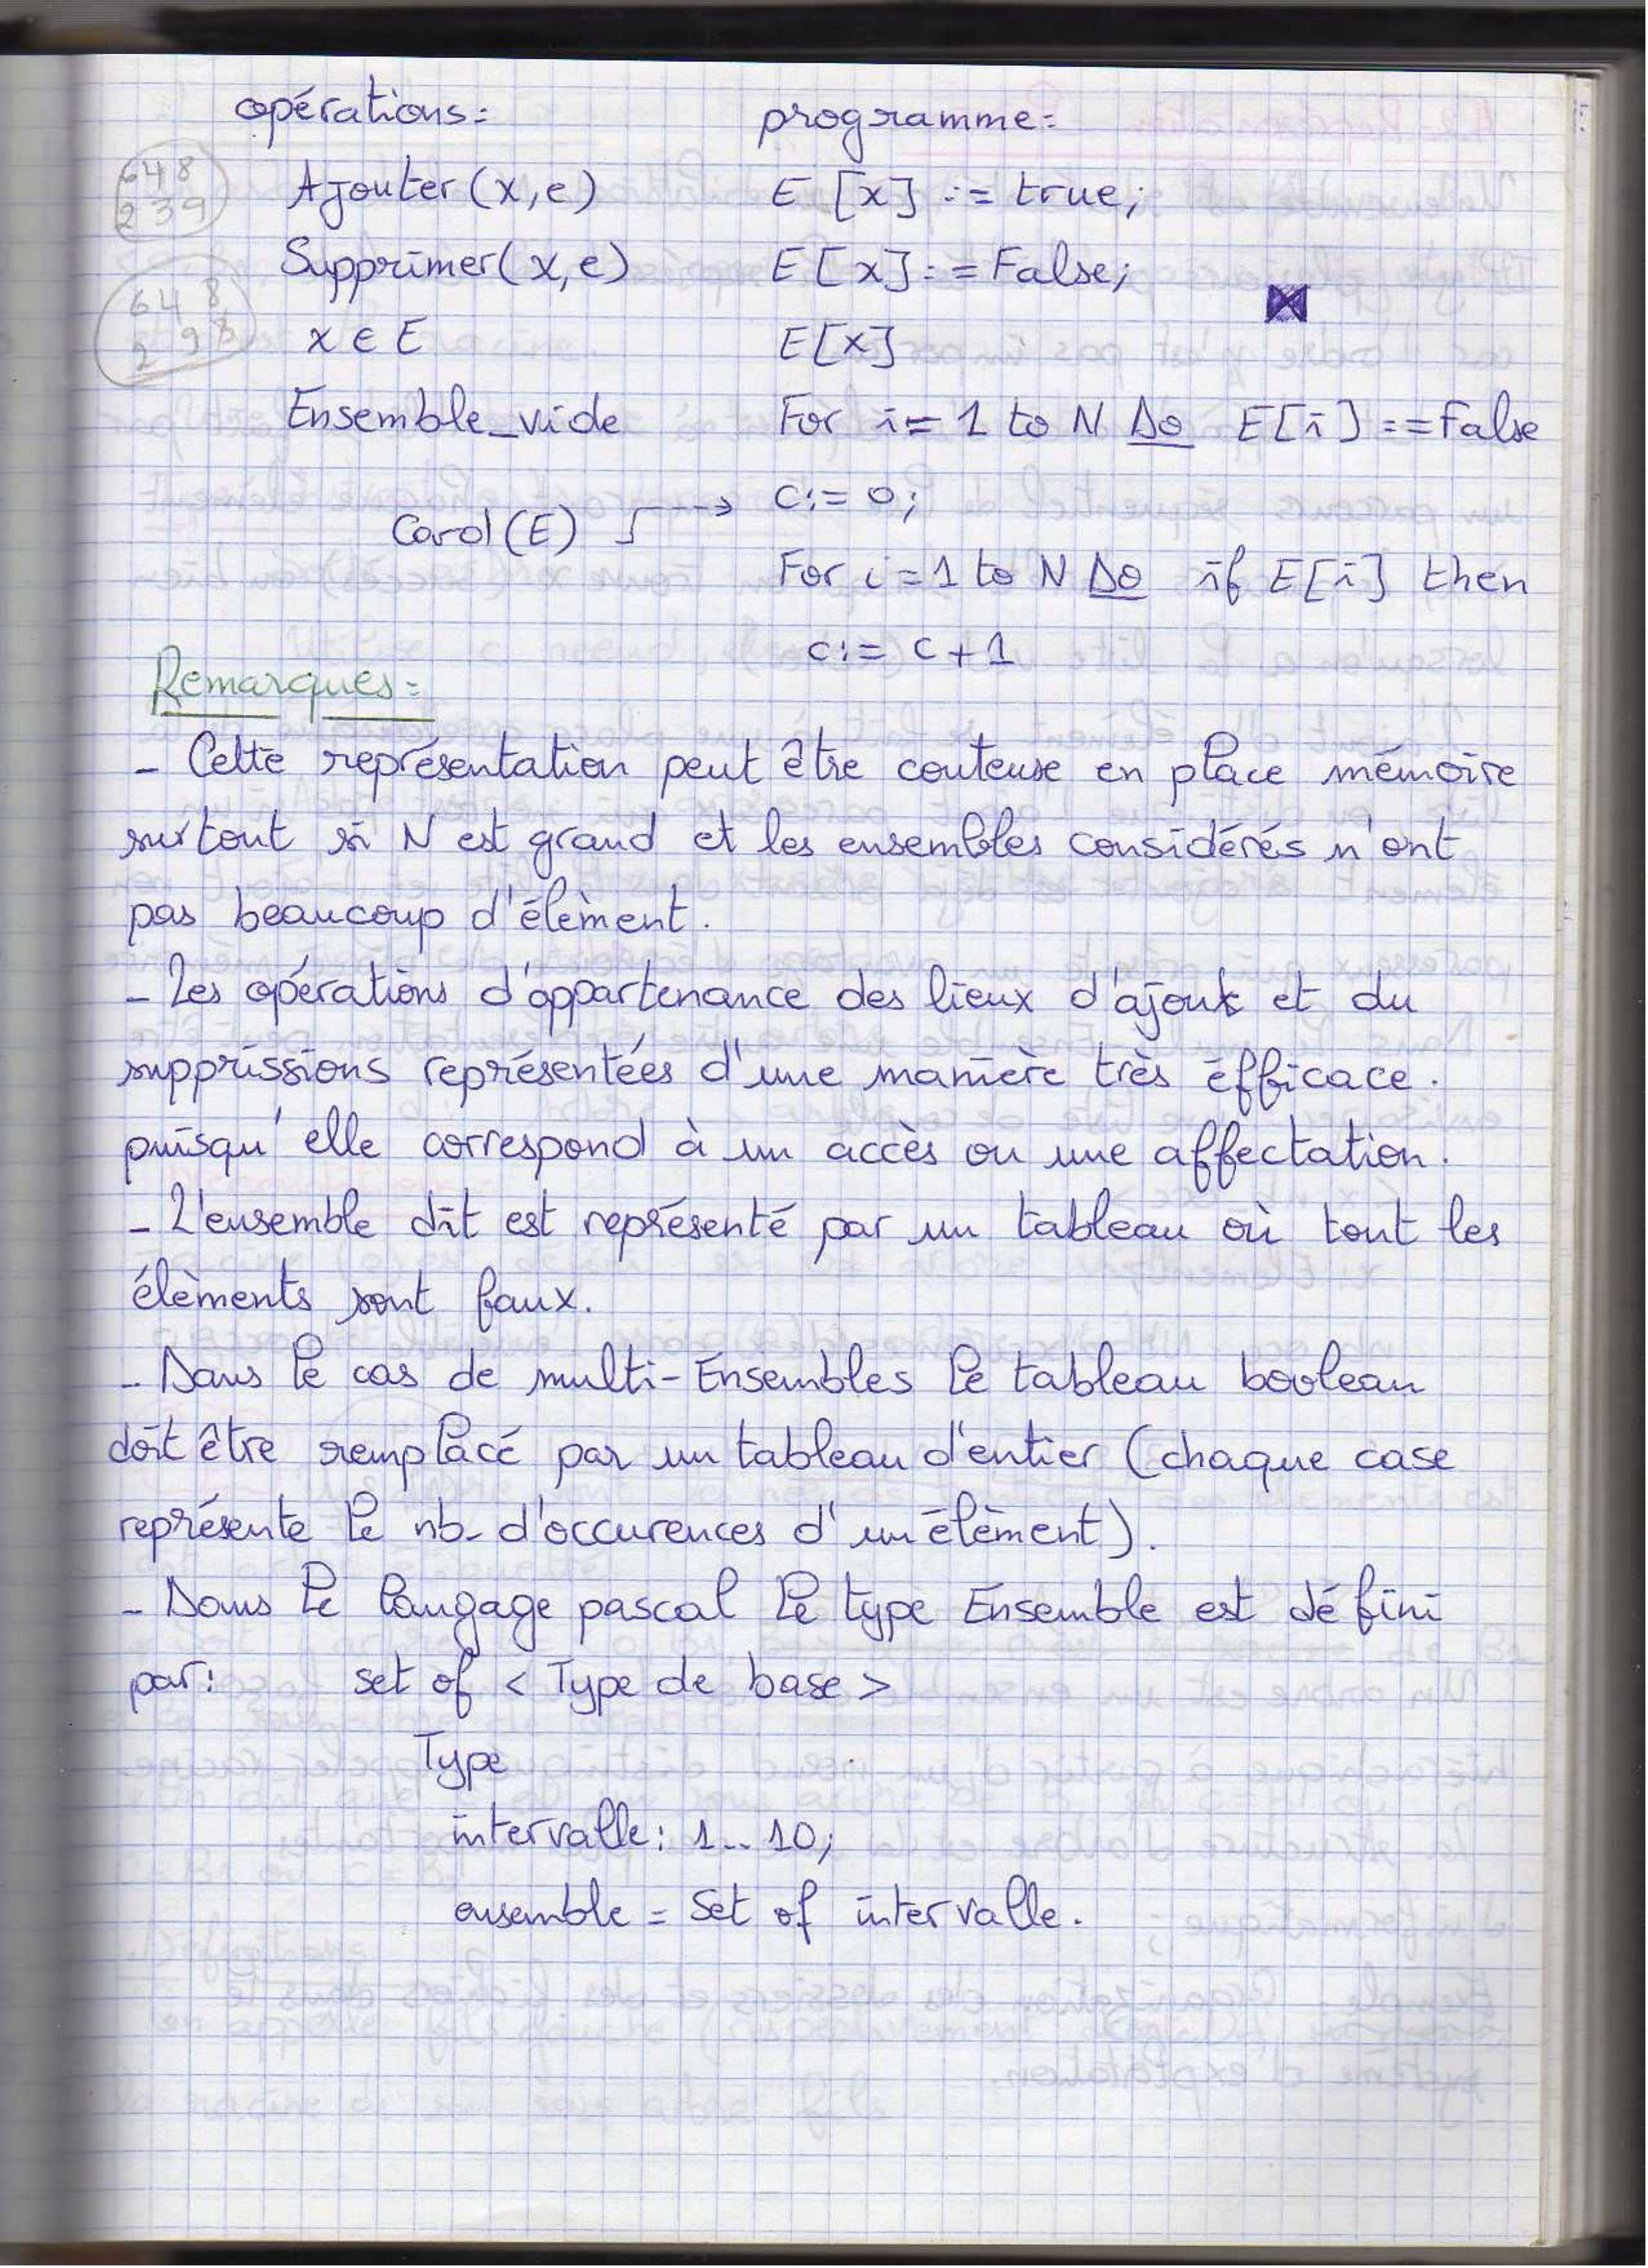 opérations:
programme:
648
239
Ajouter(x,e)
E [x] := true;
Supprimer(x,e)
E[x]:=False;
648
298
x ∈ E
E[x]
Ensemble_vide
For i=1 to N Do E[i]:==False
c:=0;
Card(E)
For i=1 to N Do if E[i] then
c:= c+1
Remarques:
- Cette représentation peut être couteuse en place mémoire
surtout si N est grand et les ensembles considérés n'ont
pas beaucoup d'élèment.
- Les opérations d'appartenance des lieux d'ajout et du
supprissions représentées d'une manière très éfficace.
puisqu'elle correspond à un accès ou une affectation.
- L'ensemble dit est représenté par un tableau où tout les
élèments sont faux.
- Dans le cas de multi-Ensembles le tableau boolean
doit être remplacé par un tableau d'entier (chaque case
représente le nb- d'occurences d'un élèment).
- Dans le langage pascal le type Ensemble est défini
par: set of < Type de base >
Type
intervalle: 1..10;
ensemble = Set of intervalle.